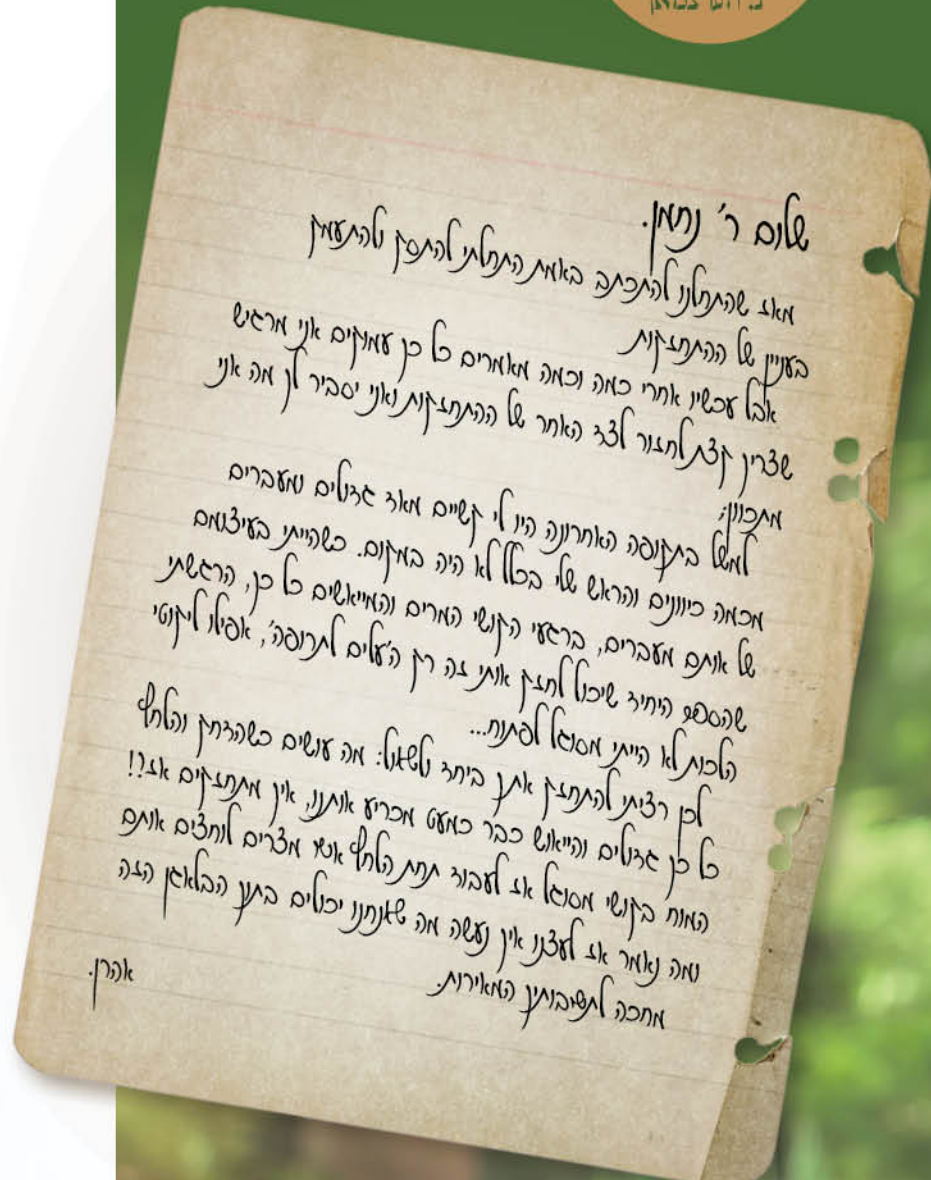 שלום ר' נחמן.
מאז שהתחלנו להתכתב באמת התחלתי להתפק ולהתעמק
בעניין של ההתחזקות
אבל עכשיו אחרי כמה וכמה מאמרים כל כך עמוקים אני מרגיש
שצריך קצת לחזור לצד האחר של ההתחזקות ואני יסביר לך מה אני
מתכוון:
למשל בתקופה האחרונה היו לי קשיים מאד גדולים ומעברים
מכמה כיוונים והראש שלי בכלל לא היה במקום. כשהייתי בעיצומם
של אותם מעברים, ברגעי הקושי המרים והמייאשים כל כך, הרגשתי
שהספר היחיד שיכול לחזק אותי זה רק ה'עלים לתרופה', אפילו ליקוטי
הלכות לא הייתי מסוגל לפתוח...
לכן רציתי להתחזק אתך ביחד ולשאול: מה עושים כשהדחק והלחץ
כל כך גדולים והייאוש כבר כמעט מכריע אותנו, איך מתחזקים אז?!
המוח בקושי מסוגל אז לעבוד תחת הלחץ אשר מצרים לוחצים אותם
ומה נאמר אז לעצנו איך נעשה מה שאנחנו יכולים בתוך הבלאגן הזה
מחכה לתשובותיך המאירות.
אהרן.